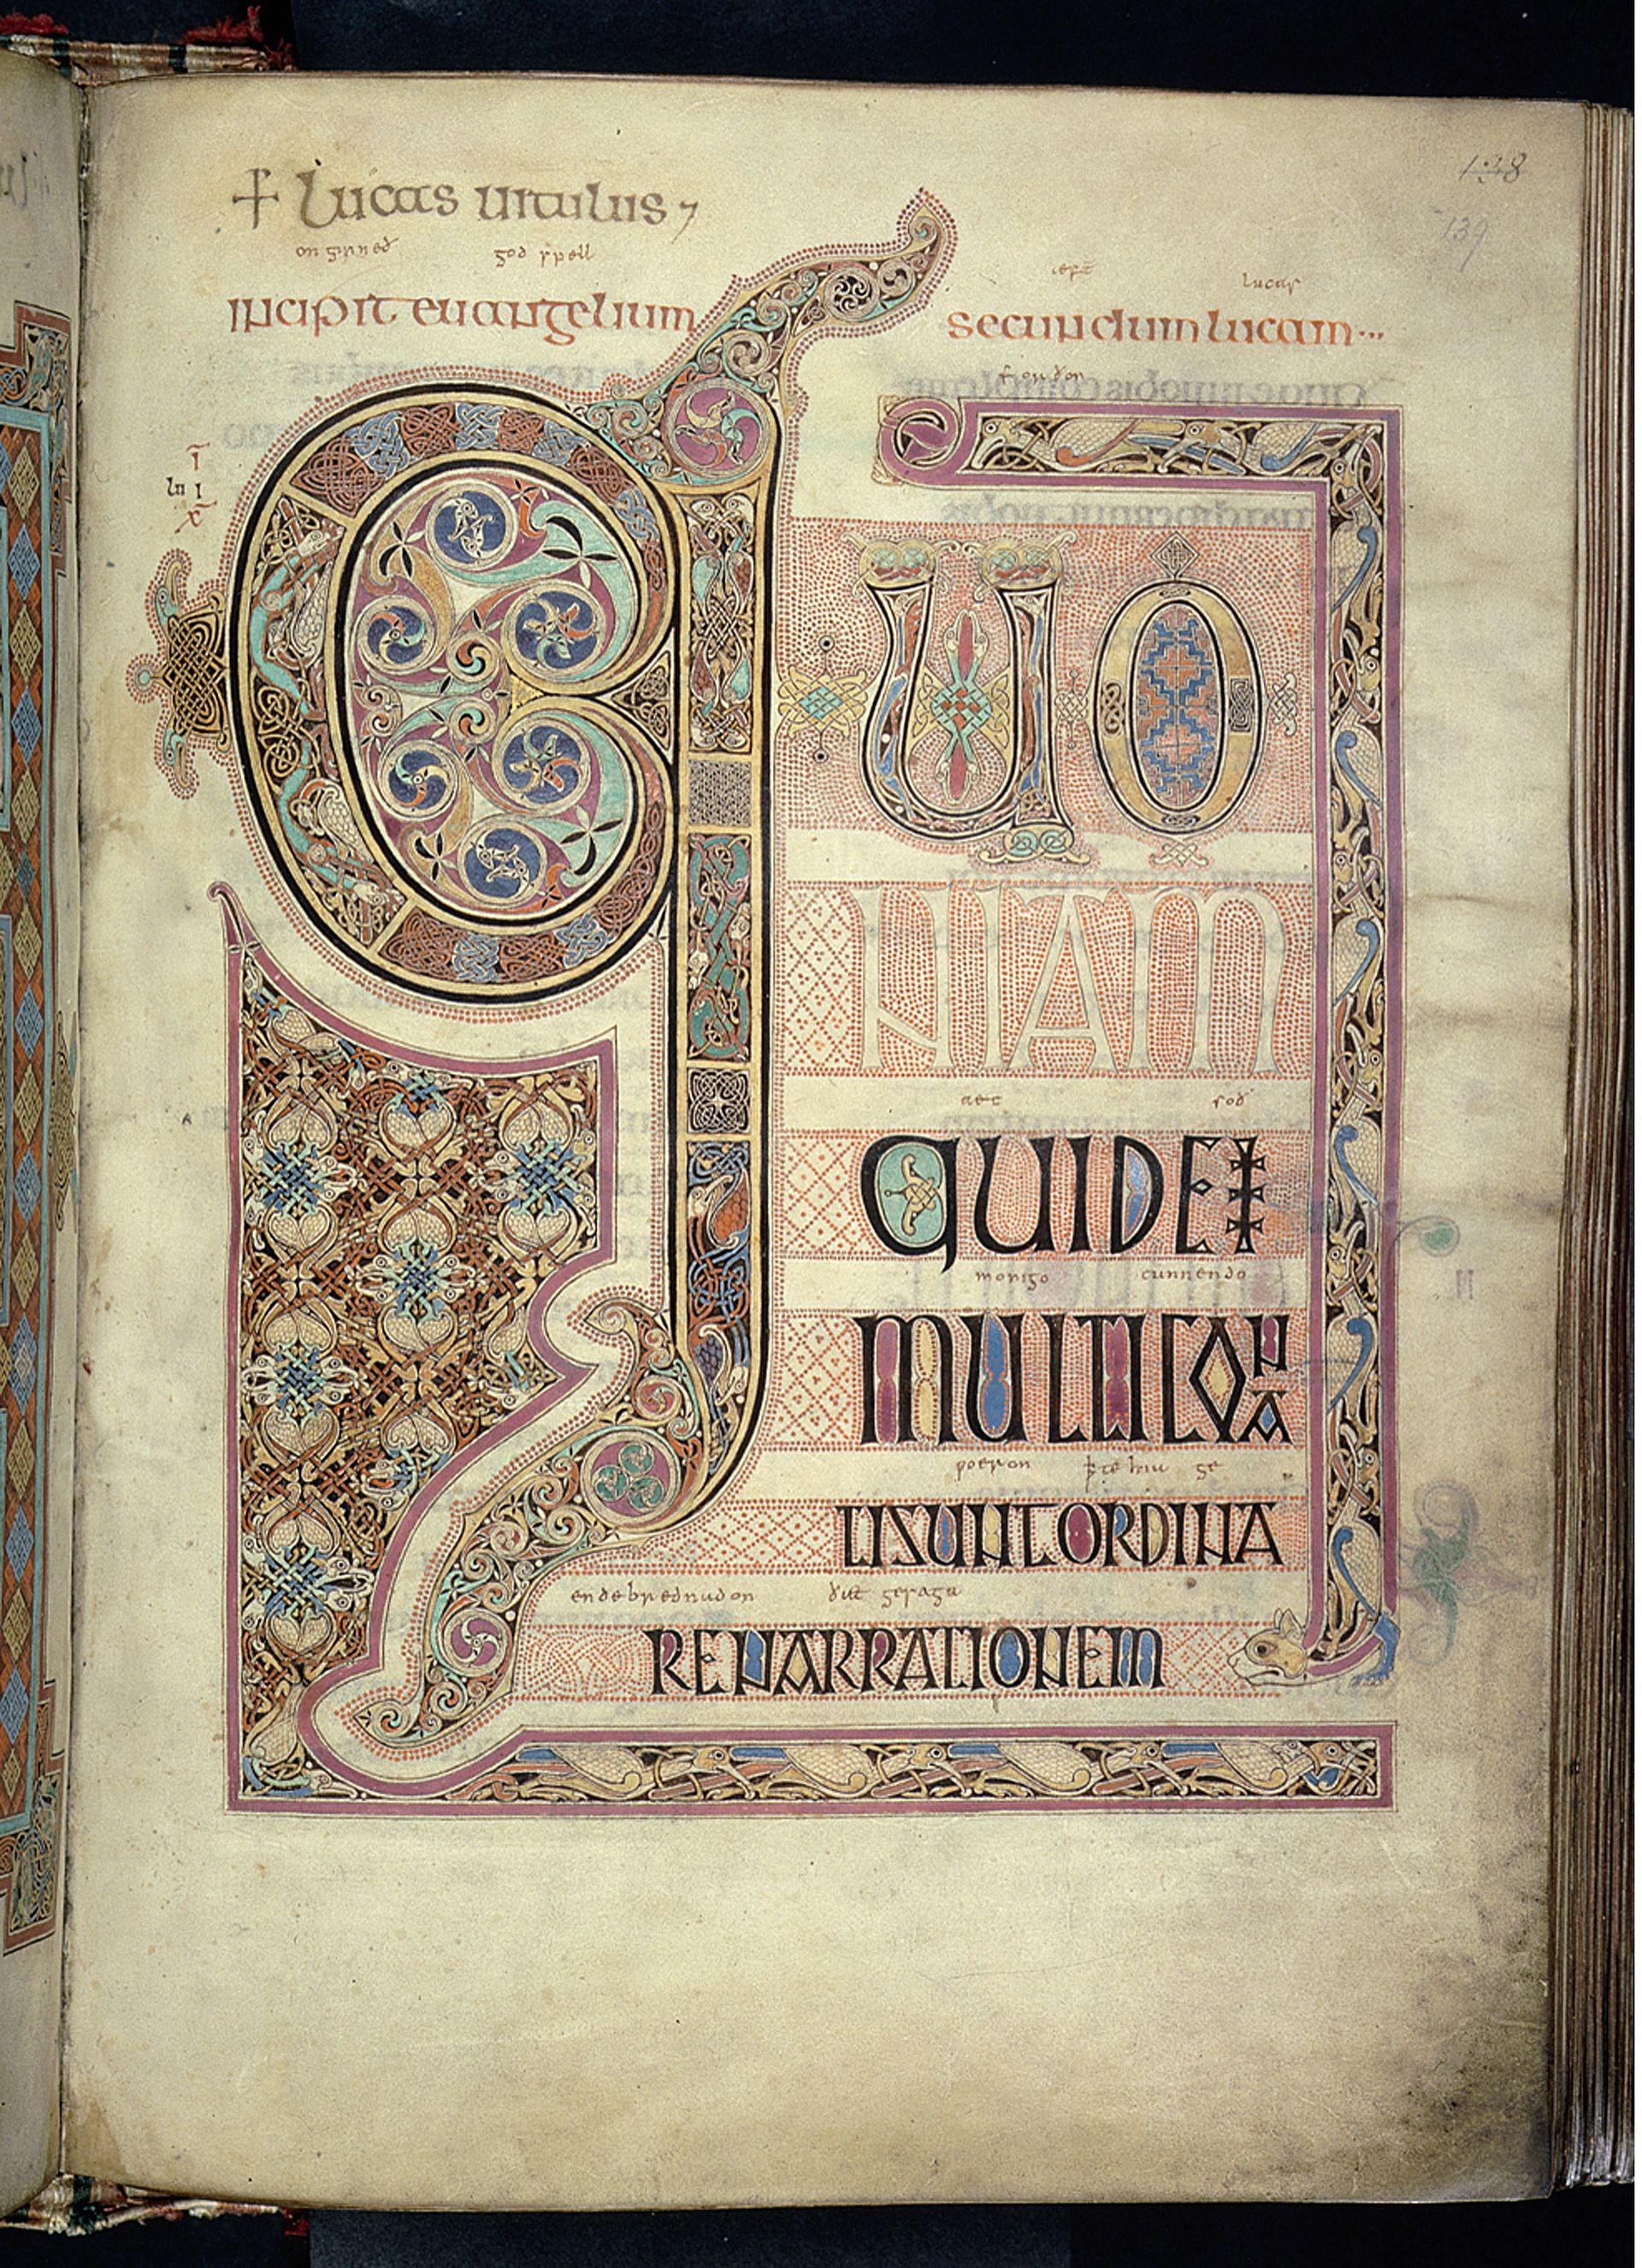 138
139
+ Lucas uitulus 7
onginneð godspell
lucas
incipit euangelium secundum lucam...
forðon
QUO
NIAM
aec soð
QUIDEM
monigo cunnendo
MULTICONA
woeron þte hiu ge
TISUNTORDINA
endebrednudon ðæt geragu
RENARRATIONEM